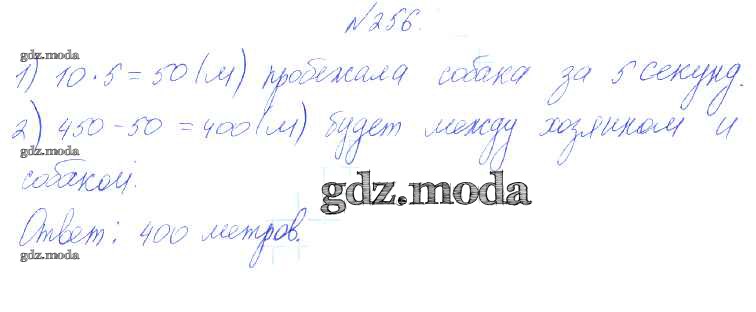 №256.
gdz.moda
1) 10·5=50(м) пробежала собака за 5 секунд.
2) 450-50=400(м) будет между хозяином и
gdz.moda
собакой.
gdz.moda
Ответ: 400 метров.
gdz.moda